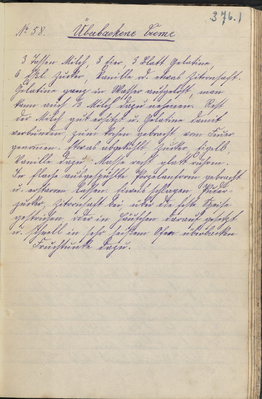 376.1
No 58. Überbackene Creme
3 Tassen Milch, 3 Eier, 3 Blatt Gelatine,
6 Eßl. Zucker, Vanille od. etwas Zitronensaft.
Gelatine ganz in Wasser aufgelöst, man
kann auch ½ Milch dazu nehmen. Rest
der Milch gut erhitzt u. Gelatine damit
verbunden, zum Kochen gebracht vom Feuer
genommen. Etwas abgekühlt Zucker, Eigelb,
Vanille dazu. Masse recht glatt rühren.
In flache ausgespühlte Porzelanform gebracht
u. erstarren lassen. Eiweis schlagen, Puder-
zucker, Zitronensaft bei, über die feste Speise
gestrichen oder in Häufchen darauf gesetzt
u. schnell in sehr heißem Ofen überbacken.
Fruchttunke dazu.